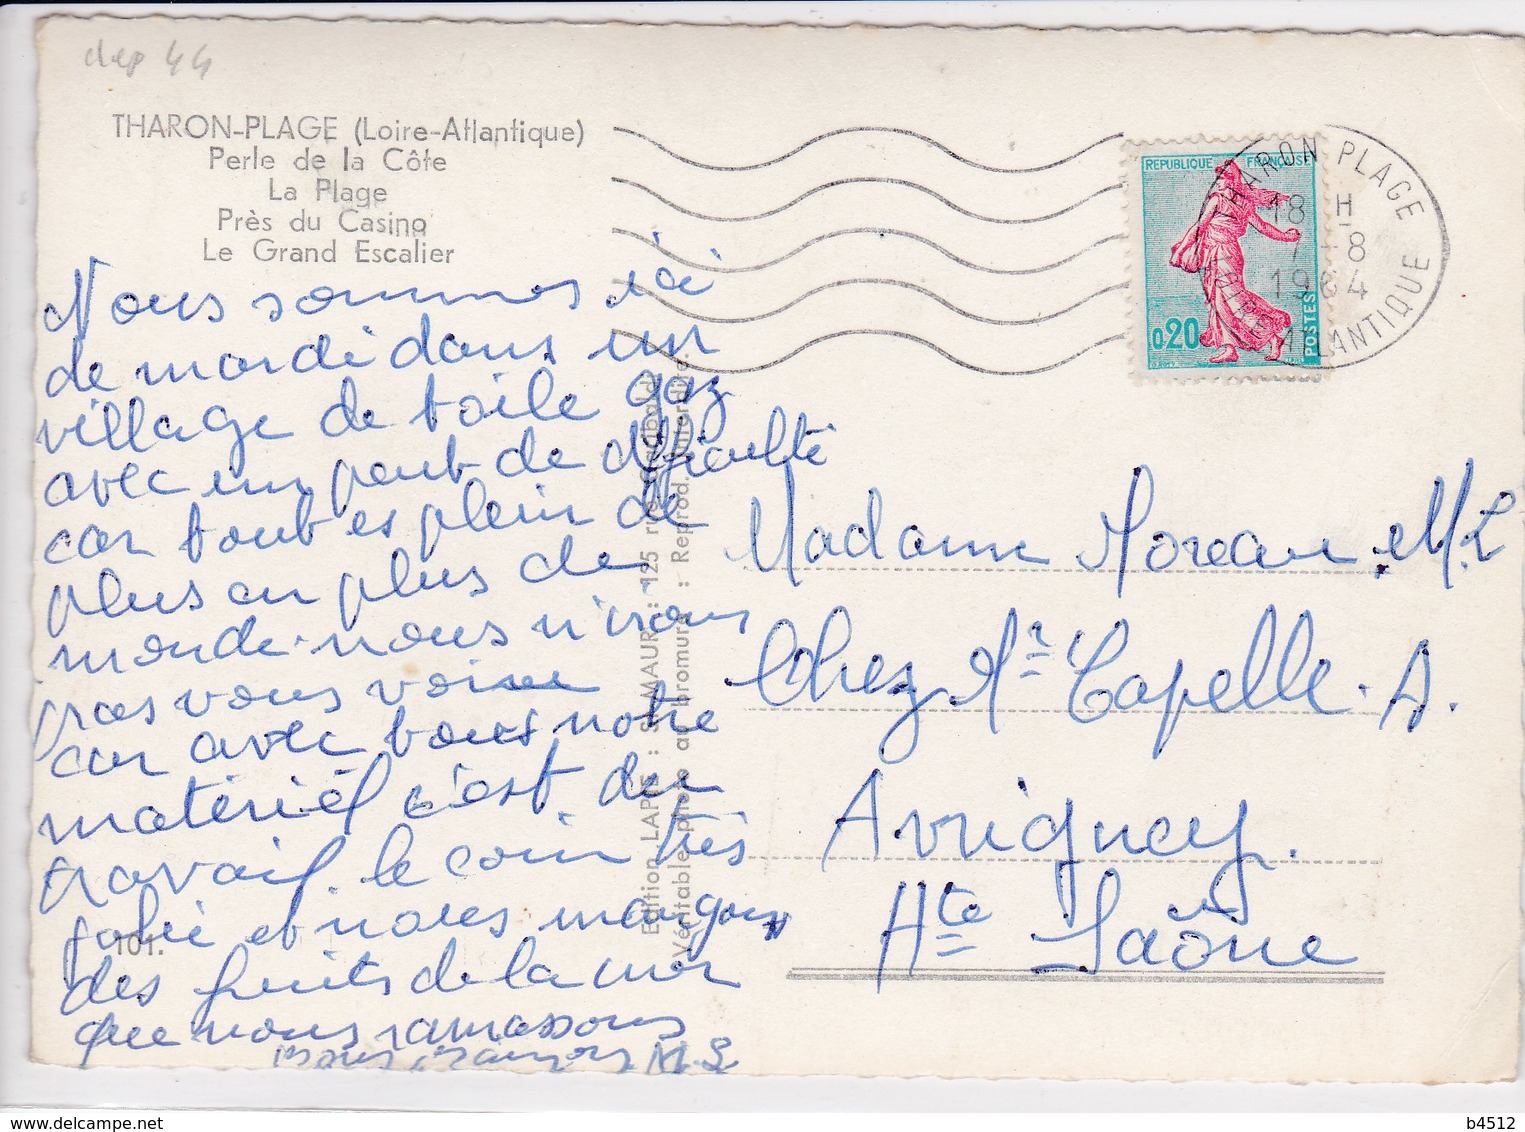 dep 44
THARON-PLAGE (Loire-Atlantique)
Perle de la Côte
La Plage
Près du Casino
Le Grand Escalier
Nous sommes ici
de mardi dans un
village de toile gaz
avec un peut de difficulté
car tout es plein de
plus en plus de
monde. nous n'irons
pas vous voire
car avec tous notre
matériel c'est du
travail. le coin très
jolie et nous mangons
des fruits de la mer
que nous ramassons
Bons Baisers M.L
101.
Edition LAPIE : St-MAUR : 125 rue Garibaldi
Véritable photo au bromure : Reprod. interdite.
REPUBLIQUE FRANÇAISE
0,20
POSTES
THARON PLAGE
18 H
7 - 8
1964
LOIRE ATLANTIQUE
Madame Moreau M.L
Chez Mr Capelle. A.
Avrigney.
Hte Saône
delcampe.net
b4512